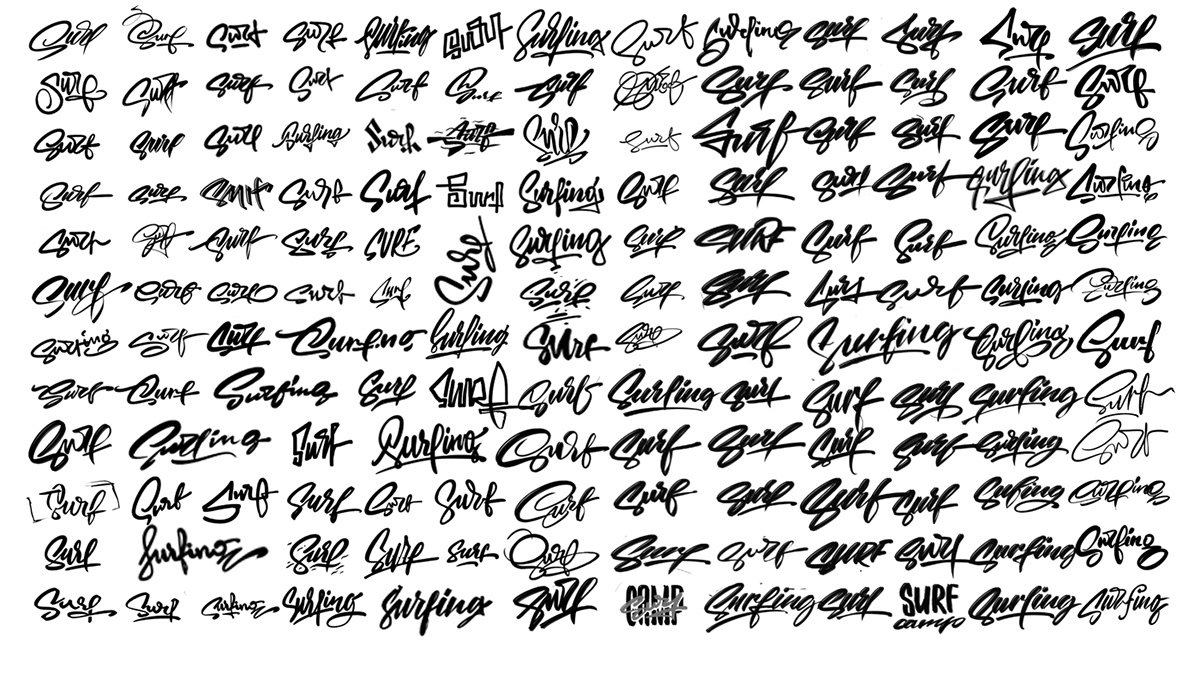 Surf Surf Surf Surf Surfing Surf Surfing Surf Surfing Surf Surf Surf Surf
Surf Surf Surf Surf Surf Surf Surf Surf Surf Surf Surf Surf Surf
Surf Surf Surf Surfing Surf Surf Surf Surf Surf Surf Surf Surf Surfing
Surf Surf Surf Surf Surf Surf Surfing Surf Surf Surf Surf Surfing Surfing
Surf Surf Surf Surf SURF Surf Surfing Surf SURF Surf Surf Surfing Surfing
Surf Surf Surf Surf Surf Surf Surf Surf Surf Surf Surfing Surfing
Surfing Surf Surf Surfing Surfing Surf Surf Surf Surfing Surfing Surf
Surf Surf Surfing Surf Surf Surf Surfing Surf Surf Surf Surfing Surf
Surf Surfing Surf Surfing Surf Surf Surf Surf Surf Surfing Surf
Surf Surf Surf Surf Surf Surf Surf Surf Surf Surf Surf Surfing Surfing
Surf Surfing Surf Surf Surf Surf Surf Surf SURF Surf Surfing Surfing
Surf Surf Surfing Surfing Surfing Surf CAMP Surf Surfing Surf SURF camp Surfing Surfing